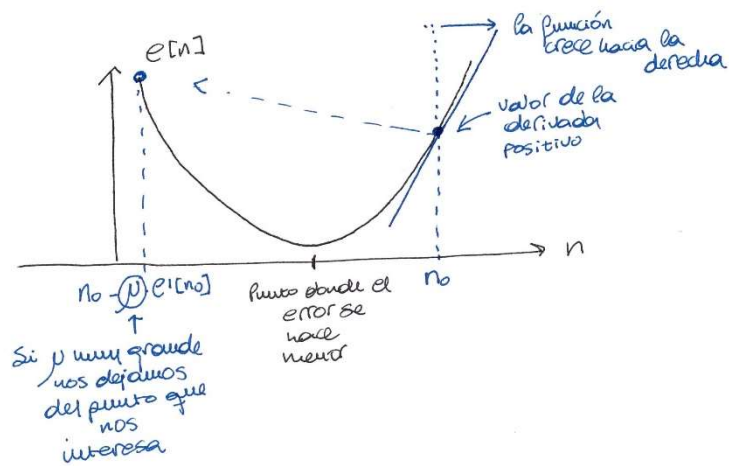 e[n]
la función
crece hacia la
derecha
valor de la
derivada
positivo
n
n₀ - μ · e'[n₀]
Punto donde el
error se
hace
menor
n₀
Si μ muy grande
nos dejamos
del punto que
nos
interesa